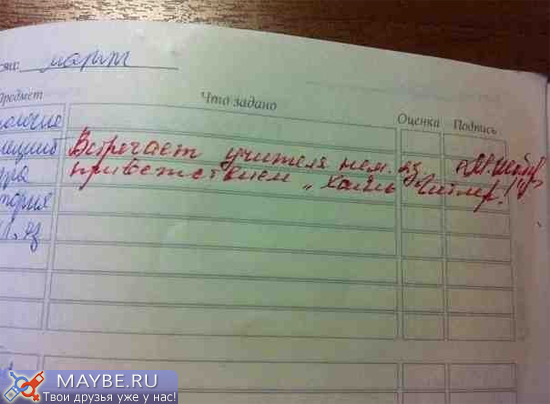 март
Предмет Что задано Оценка Подпись
Встречает учителя нем. яз
приветствием „Хайль Гитлер!"
MAYBE.RU
Твои друзья уже у нас!